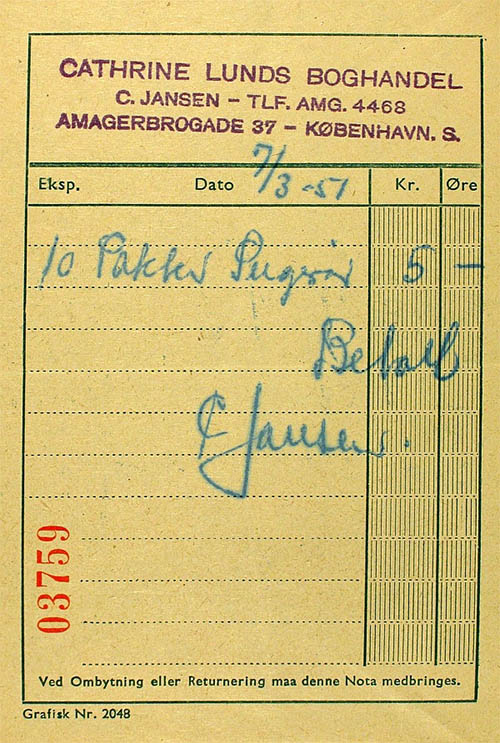 CATHRINE LUNDS BOGHANDEL
C. JANSEN – TLF. AMG. 4468
AMAGERBROGADE 37 – KØBENHAVN. S.
Eksp. Dato 7/3 -51 Kr. Øre
10 Pakker 5 –
Betalt
C Jansen.
03759
Ved Ombytning eller Returnering maa denne Nota medbringes.
Grafisk Nr. 2048